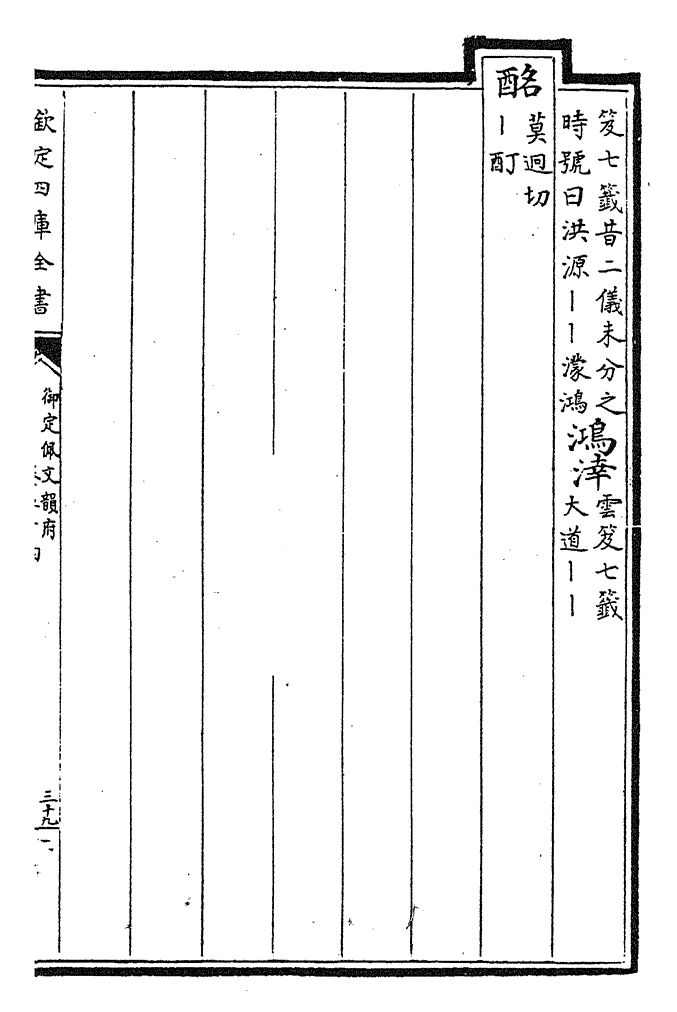 笈七籤昔二儀未分之
時號曰洪源丨丨濛鴻
鴻涬
雲笈七籤
大道丨丨
酩
莫迥切
丨酊
欽定四庫全書
御定佩文韻府
三十九